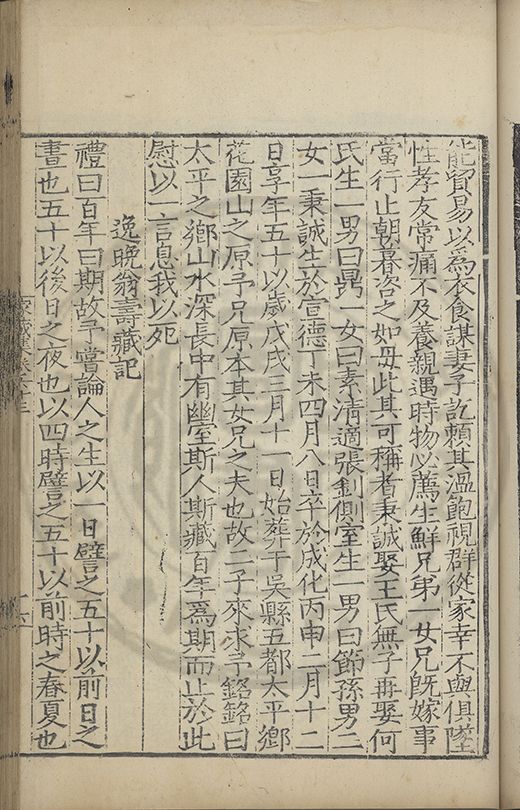 能貿易以為衣食謀妻子訖賴其溫飽視群從家幸不與俱墜
性孝友常痛不及養親遇時物必薦生鮮兄弟一女兄旣嫁事
當行止朝暮咨之如母此其可稱者秉誠娶王氏無子再娶何
氏生一男曰鼎一女曰素清適張釗側室生一男曰節孫男二
女一秉誠生於宣德丁未四月八日卒於成化丙申二月十二
日享年五十以歲戊戌三月十一日始葬于吳縣五都太平鄉
花園山之原予兄原本其女兄之夫也故二子來求予銘銘曰
太平之鄉山水深長中有幽室斯人斯藏百年為期而止於此
慰以一言息我以死
逸晚翁壽藏記
禮曰百年曰期故予嘗論人之生以一日譬之五十以前日之
晝也五十以後日之夜也以四時譬之五十以前時之春夏也